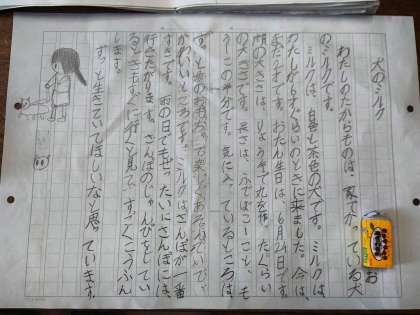 犬のミルク
わたしのたからものは、家でかっている犬
のミルクです。
ミルクは、白色と茶色の犬です。ミルクは、
わたしが6才くらいのときに来ました。今は、
です。おたん生日は、6月24日です。
顔の大きさは、りょう手で丸を作っただくらい
の大きさです。長さは、ふでばこ一こと、も
う一この半分です。気に入っているところは、
ずっと前のおもちゃで楽しくあそんでいて、
かわいいところです。ミルクはさんぽが一番
すきです。雨の日でもぜったいにさんぽには、
行きたがります。さんぽのじゅんびをしてい
るときもすぐに行くと見て、すっごくこうふん
します。
ずっと生きていてほしいなと思っています。